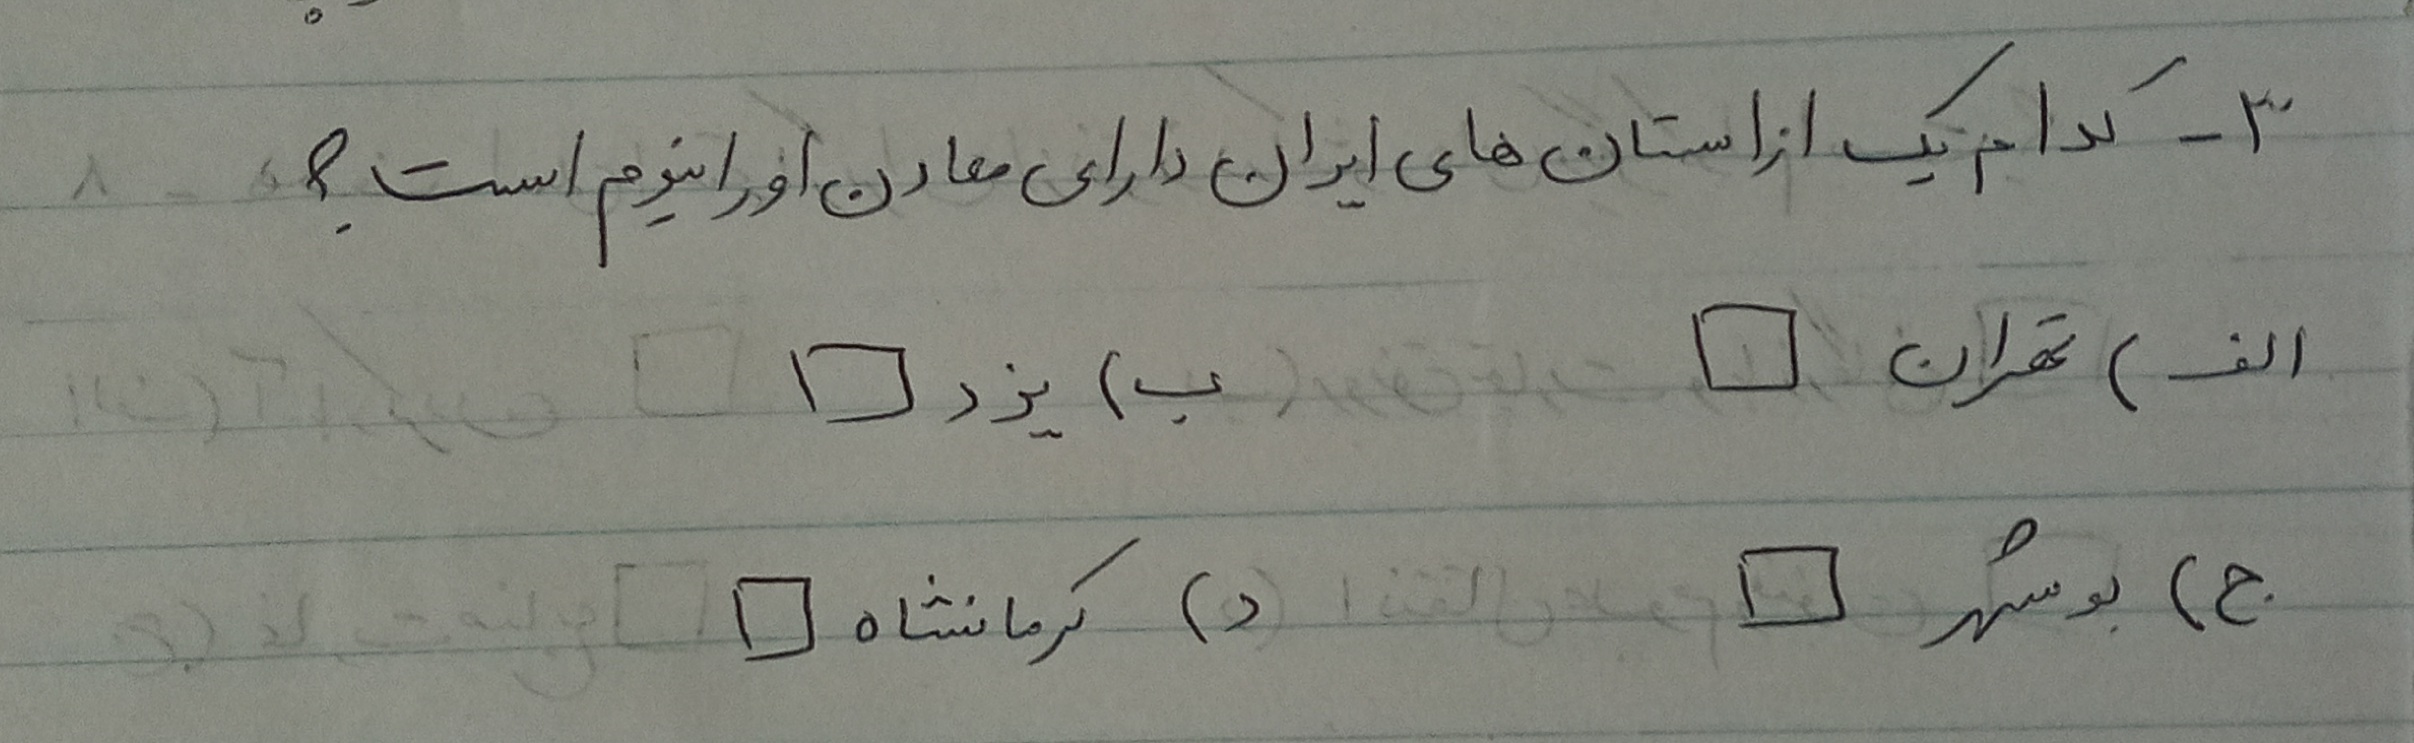 ۳- کدام یک از استان های ایران دارای معادن اورانیوم است؟
الف) تهران □ ب) یزد □
ج) بوشهر □ د) کرمانشاه □